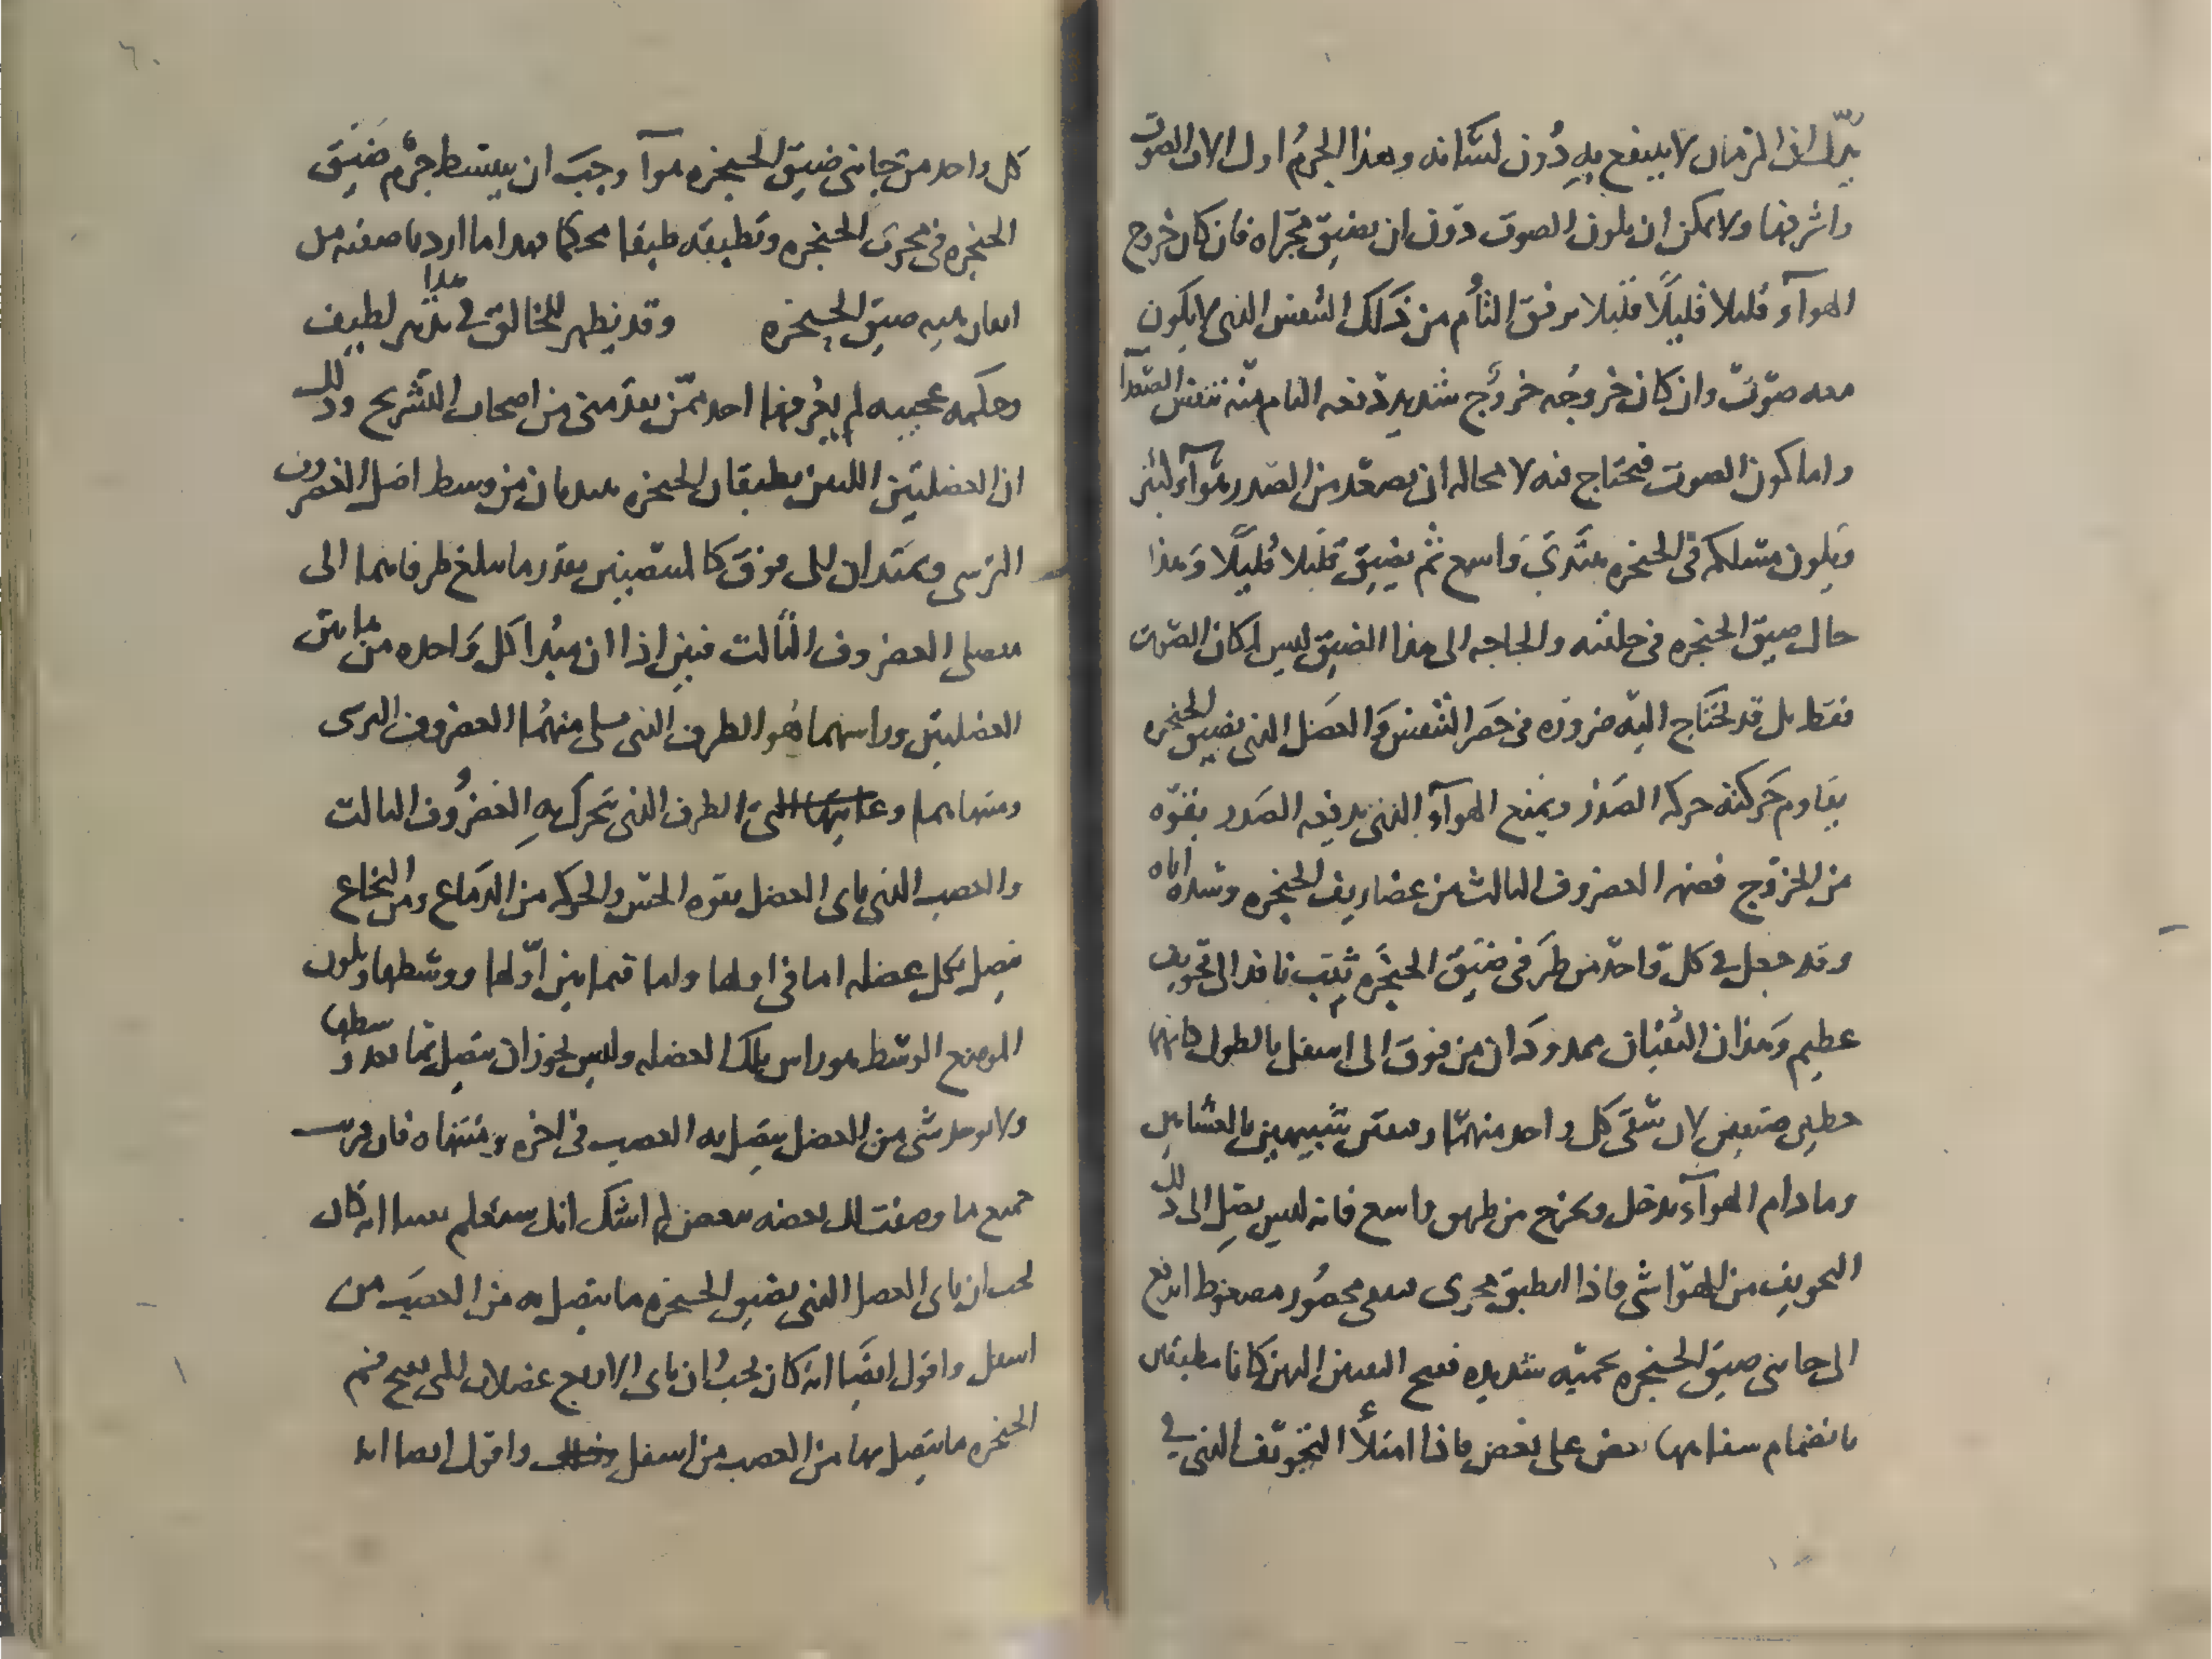 يدلك ان الزمان لا ينتفع به دون لسانه وهذا الجرم اول الات الصوت
واشرفها ولا يمكن ان يكون الصوت دون ان يضيق مجراه فان كان خروج
الهوآء قليلا قليلًا قليلا برفق التأم من ذلك النفس الذي لا يكون
معه صوت وان كان خروجه خروج شديد دفعه التام منه تنفس الصعدآ
واما كون الصوت فيحتاج فيه لا محاله ان يصعد من الصدر هوآء كثير
ويكون مسلكه في الحنجره مبتدى واسع ثم يضيق قليلا قليلًا وهذا
حال ضيق الحنجره في خلقته والحاجه الى هذا الضيق ليس لمكان الصوت
فقط بل قد يحتاج اليه ضروره في حصر النفس والعضل الذي يضيق الحنجره
يقاوم حركته حركه الصدر ويمنع الهوآء الذي يدفعه الصدر بقوه
من الخروج فضمه الغضروف الثالث من غضاريف الحنجره وشده اياه
وقد جعل في كل واحد من طرفى ضيق الحنجره ثقب نافذ الى تجويف
عظيم وهذان الثقبان ممدودان من فوق الى اسفل بالطول كانهما
خطين ضيقين لان شقى كل واحد منهما رقيقين شبيهين بالغشايين
وما دام الهوآء يدخل ويخرج من طريق واسع فانه ليس يصل الى ذلك
التجويف من الهوا شى فاذا انطبق مجرى بقى محصور مضغوط اندفع
الى جانبى ضيق الحنجره بحميه شديده ففتح الثقبين الذين كانا مطبقين
بانضمام شفاهها بعض على بعض فاذا امتلأ التجويف الذي في
كل واحد من جانبى ضيق الحنجره هوآ وجب ان ينبسط جرم ضيق
الحنجره في مجرى الحنجره وتطبيقه طبيقا محكما هذا ما اردنا صفته من
افعال ضيق الحنجره وقد يظهر للخالق في هذا تدبير لطيف
وحكمه عجيبه لم يعرفها احد ممن تقدمنى من اصحاب التشريح وذلك
ان العضلتين اللتين يطبقان الحنجره يبتديان من وسط اصل الغضروف
الترسى ويمتدان الى فوق كالمنتصبين بقدر ما يبلغ طرفاهما الى
مفصلى الغضروف الثالث فبين اذا ان مبدا كل واحده من هاتين
العضلتين وراسهما هو الطرف الذي يلى منهما الغضروف الترسى
ومنتهاهما وغايتهما الى الطرف الذي يتحرك به الغضروف الثالث
والعصب الذي ياتى العضل بقوه الحس والحركه من الدماع ومن النخاع
يتصل بكل عضله اما في اولها واما فيما بين اولها ووسطها ويكون
الموضع الوسط هو راس تلك العضله وليس يجوز ان يتصل بما بعد وسطها
ولا يوجد شى من العضل يتصل به العصب في اخره ومنتهاه فان قربت
جميع ما وصفت لك بعضه ببعض لم اشك انك ستعلم يقينا انه كان
يجب ان ياتى العضل الذي يضيق الحنجره ما يتصل به من العصب من
اسفل واقول ايضا انه كان يجب ان ياتى الاربع عضلات التى تفتح فم
الحنجره ما يتصل بها من العصب من اسفل واقول ايضا انه